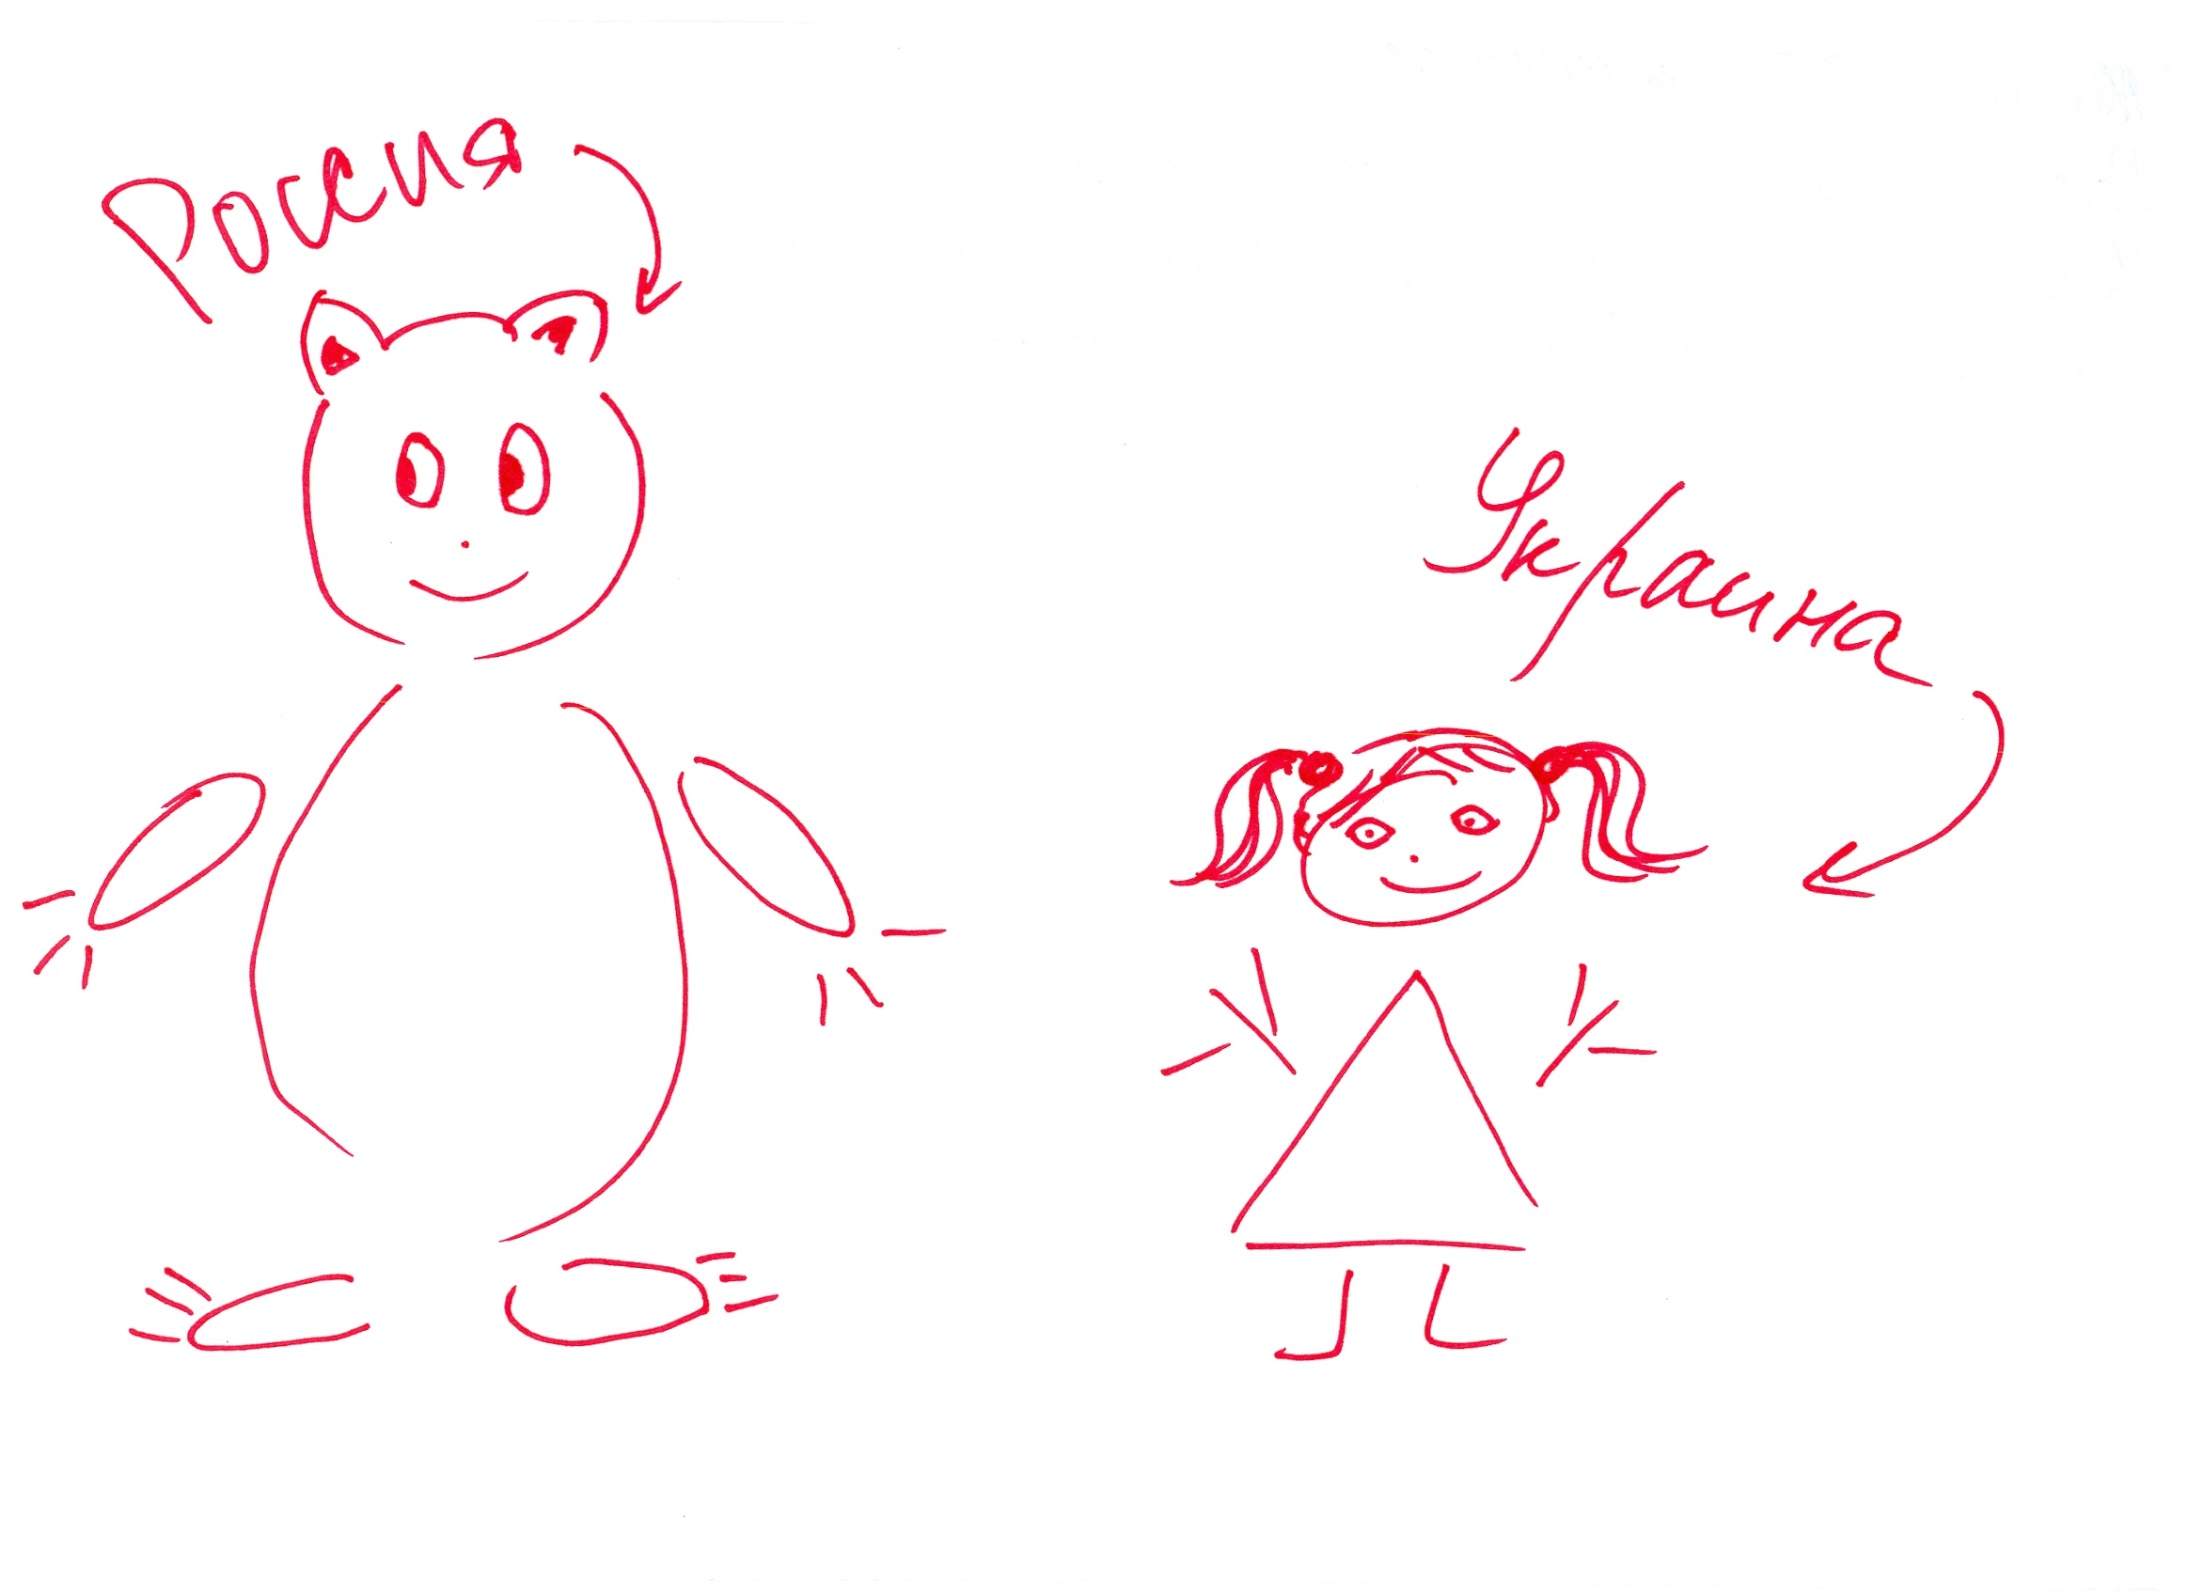 Россия
Украина